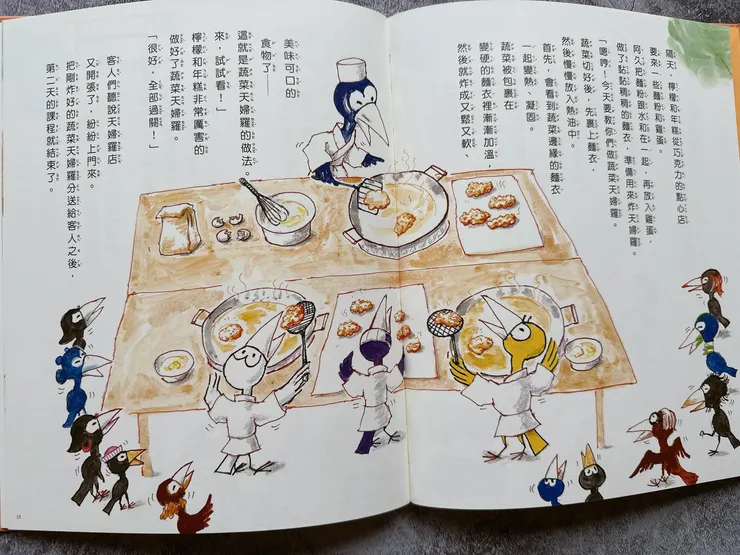 隔天，檸檬和年糕從巧克力的點心店
要來一些麵粉和雞蛋。
阿久把麵粉跟水和在一起，再放入雞蛋，
做了黏黏稠稠的麵衣，準備用來炸天婦羅。
「嗯哼！今天要教你們做蔬菜天婦羅。
蔬菜切好後，先裹上麵衣，
然後慢慢放入熱油中。
首先，會看到蔬菜邊緣的麵衣
一起變熱、凝固。
蔬菜被包裹在
變硬的麵衣裡漸漸加溫，
然後就炸成又鬆又軟、
美味可口的
食物了——
這就是蔬菜天婦羅的做法。
來，試試看！」
檸檬和年糕非常厲害的
做好了蔬菜天婦羅。
「很好，全部過關！」
客人們聽說天婦羅店
又開張了，紛紛上門來。
把剛炸好的蔬菜天婦羅分送給客人之後，
第二天的課程就結束了。